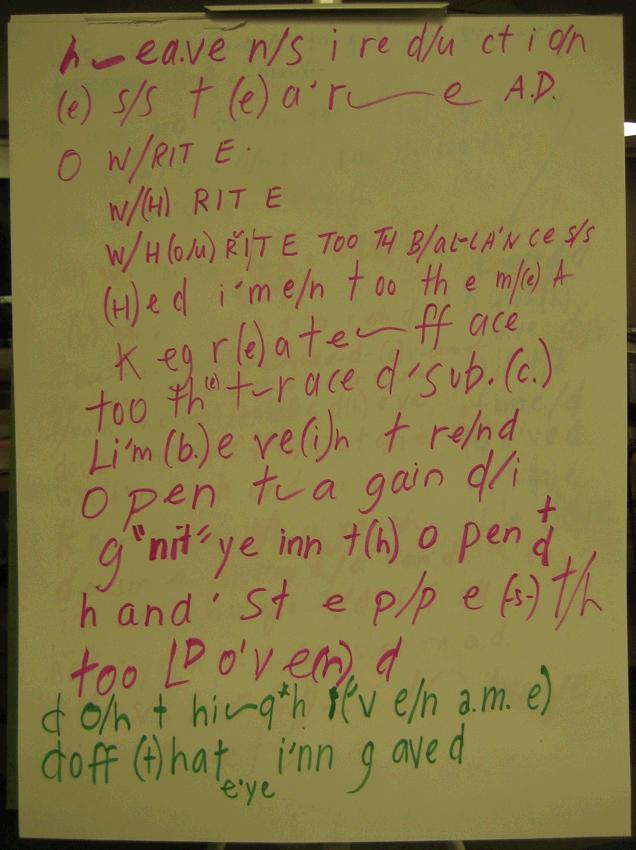 h~eave n/s i re d/u ct i o/n
(e) s/s t (e) a'r~e A.D.
O W/RIT E.
W/(H) RITE
W/H(o/u) RITE TOO TH B/aL~LA'N ce s/s
(H)e d i'm e/n t oo th e m/(e) A
K eg r(e) a t e~ff ace
too th(e) t~r ace d's ub. (c.)
Li'm (b.) e ve(i)n t re/nd
O pen t~a gain d/i
g "nit" ye inn t(h) o pen t d
h and' st e p/p e (-s-) t/h
too LD o'v e(n) d
d o/n t hi~g*h i('v e/n a.m. e)
doff (t)hat e'ye i'nn g ave d